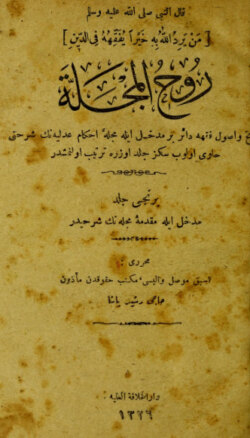 قال النبي صلى الله عليه وسلم
[ مَنْ يُرِدِ اللهُ بِهِ خَيْراً يُفَقِّهْهُ فِى الدِّينِ ]
رُوحُ المَجَلَّة
واصول فقهه دائر بر مدخل ايله مجلهٔ احكام عدليه نك شرحنى
حاوى اولوب سكز جلد اوزره ترتيب اولنمشدر
برنجى جلد
مدخل ايله مقدمهٔ مجله نك شرحيدر
محررى :
اسبق موصل واليسى مكتب حقوقدن مأذون
حاجى رشيد پاشا
دار الخلافة العليه
١٣٢٦